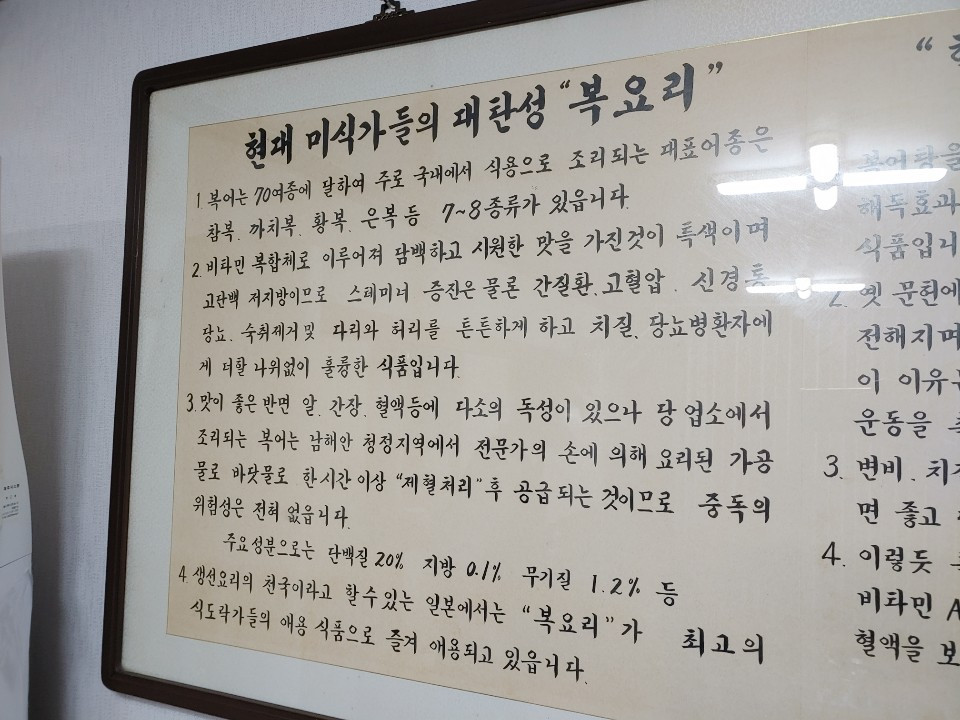 현대 미식가들의 대찬성 “복요리”
1 복어는 70여종에 달하여 주로 국내에서 식용으로 조리되는 대표어종은
참복. 까치복. 황복. 은복 등 7~8종류가 있읍니다.
2. 비타민 복합체로 이루어져 담백하고 시원한 맛을 가진것이 특색이며
고단백 저지방이므로 스테미너 증진은 물론 간질환. 고혈압. 신경통
당뇨. 숙취제거및 다리와 허리를 튼튼하게 하고 치질. 당뇨병환자에
게 더할 나위없이 훌륭한 식품입니다.
3. 맛이 좋은 반면 알. 간장. 혈액등에 다소의 독성이 있으나 당 업소에서
조리되는 복어는 남해안 청정지역에서 전문가의 손에 의해 요리된 가공
물로 바닷물로 한시간 이상 “제혈처리” 후 공급되는 것이므로 중독의
위험성은 전혀 없읍니다.
주요성분으로는 단백질 20% 지방 0.1% 무기질 1.2% 등
4. 생선요리의 천국이라고 할수있는 일본에서는 “복요리”가 최고의
식도락가들의 애용 식품으로 즐겨 애용되고 있읍니다.
“
복어탕을
해독효과
식품입니
2. 옛 문헌에
전해지며
이 이유는
운동을
3. 변비. 치
면 좋고
4. 이렇듯
비타민 A
혈액을 보